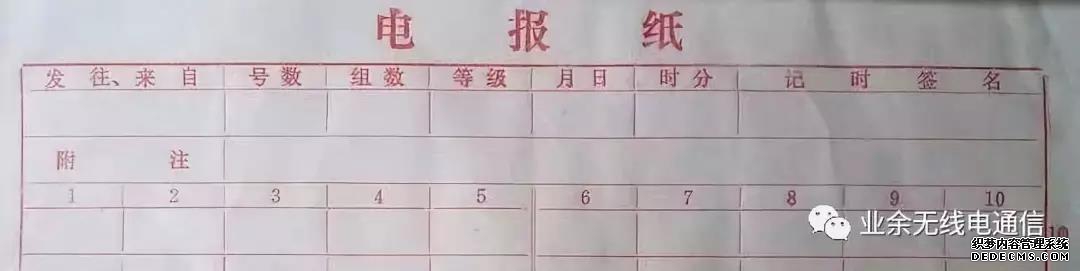 电报纸
发往、来自 号数 组数 等级 月日 时分 记时签名
附注
1 2 3 4 5 6 7 8 9 10
业余无线电通信
10
织梦内容管理系统
DEDECMS.COM